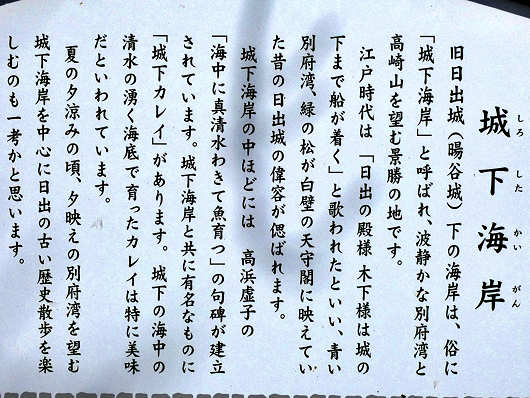 城下海岸
しろ した かい がん
旧日出城(暘谷城)下の海岸は、俗に
「城下海岸」と呼ばれ、波静かな別府湾と
高崎山を望む景勝の地です。
江戸時代は「日出の殿様 木下様は城の
下まで船が着く」と歌われたといい、青い
別府湾、緑の松が白壁の天守閣に映えてい
た昔の日出城の偉容が偲ばれます。
城下海岸の中ほどには 高浜虚子の
「海中に真清水わきて魚育つ」の句碑が建立
されています。城下海岸と共に有名なものに
「城下カレイ」があります。 城下の海中の
清水の湧く海底で育ったカレイは特に美味
だといわれています。
夏の夕涼みの頃、夕映えの別府湾を望む
城下海岸を中心に日出の古い歴史散歩を楽
しむのも一考かと思います。